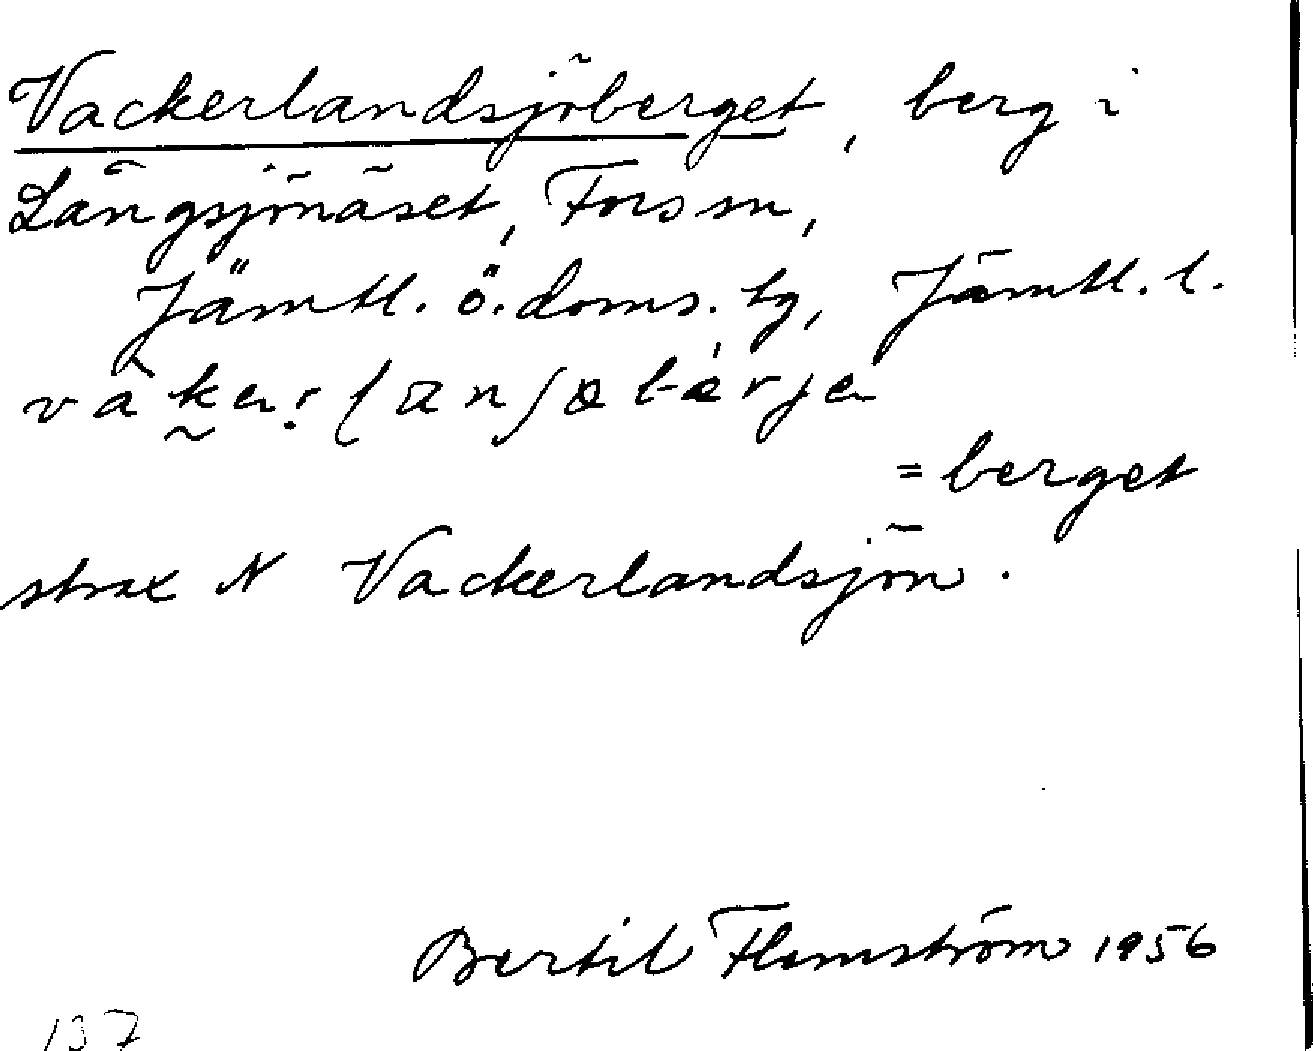 Vackerlandsjöberget, berg i
Långsjönäset, Fors sn,
Jämtl. ö. doms. tg, Jämtl. l.
= berget
strax N Vackerlandsjön.
Bertil Flemström 1956
137